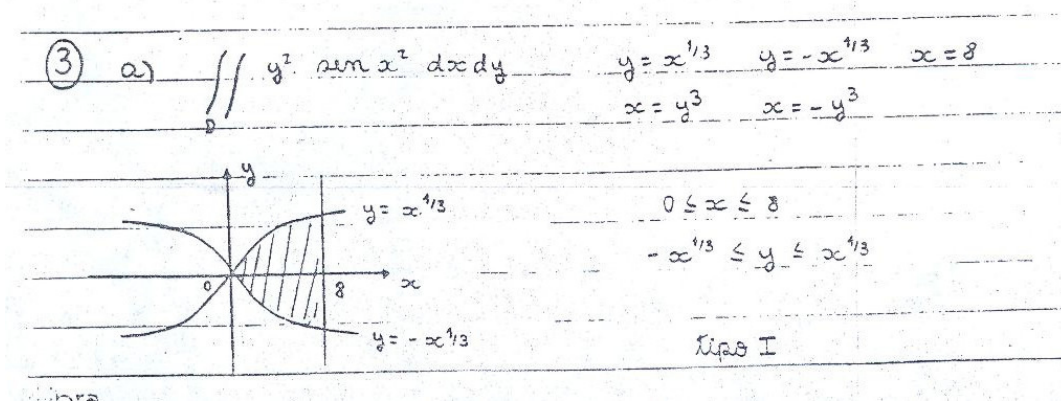 ③ a) ∬_D y² sen x² dx dy y = x^{1/3} y = -x^{1/3} x = 8
x = y³ x = -y³
y
y = x^{1/3}
0 ≤ x ≤ 8
-x^{1/3} ≤ y ≤ x^{1/3}
0 8 x
y = -x^{1/3}
tipo I